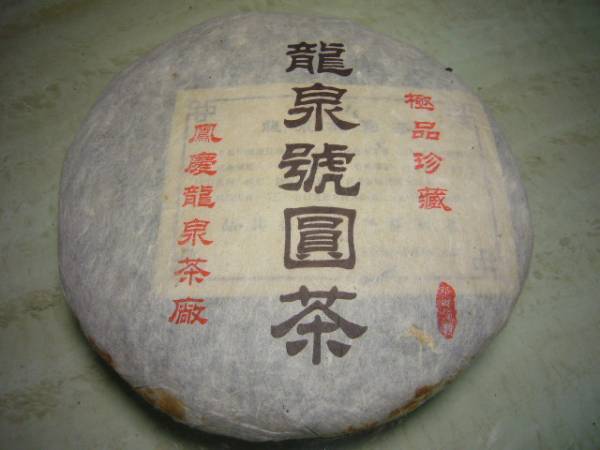 極品珍藏
龍泉號圓茶
鳳慶龍泉茶廠